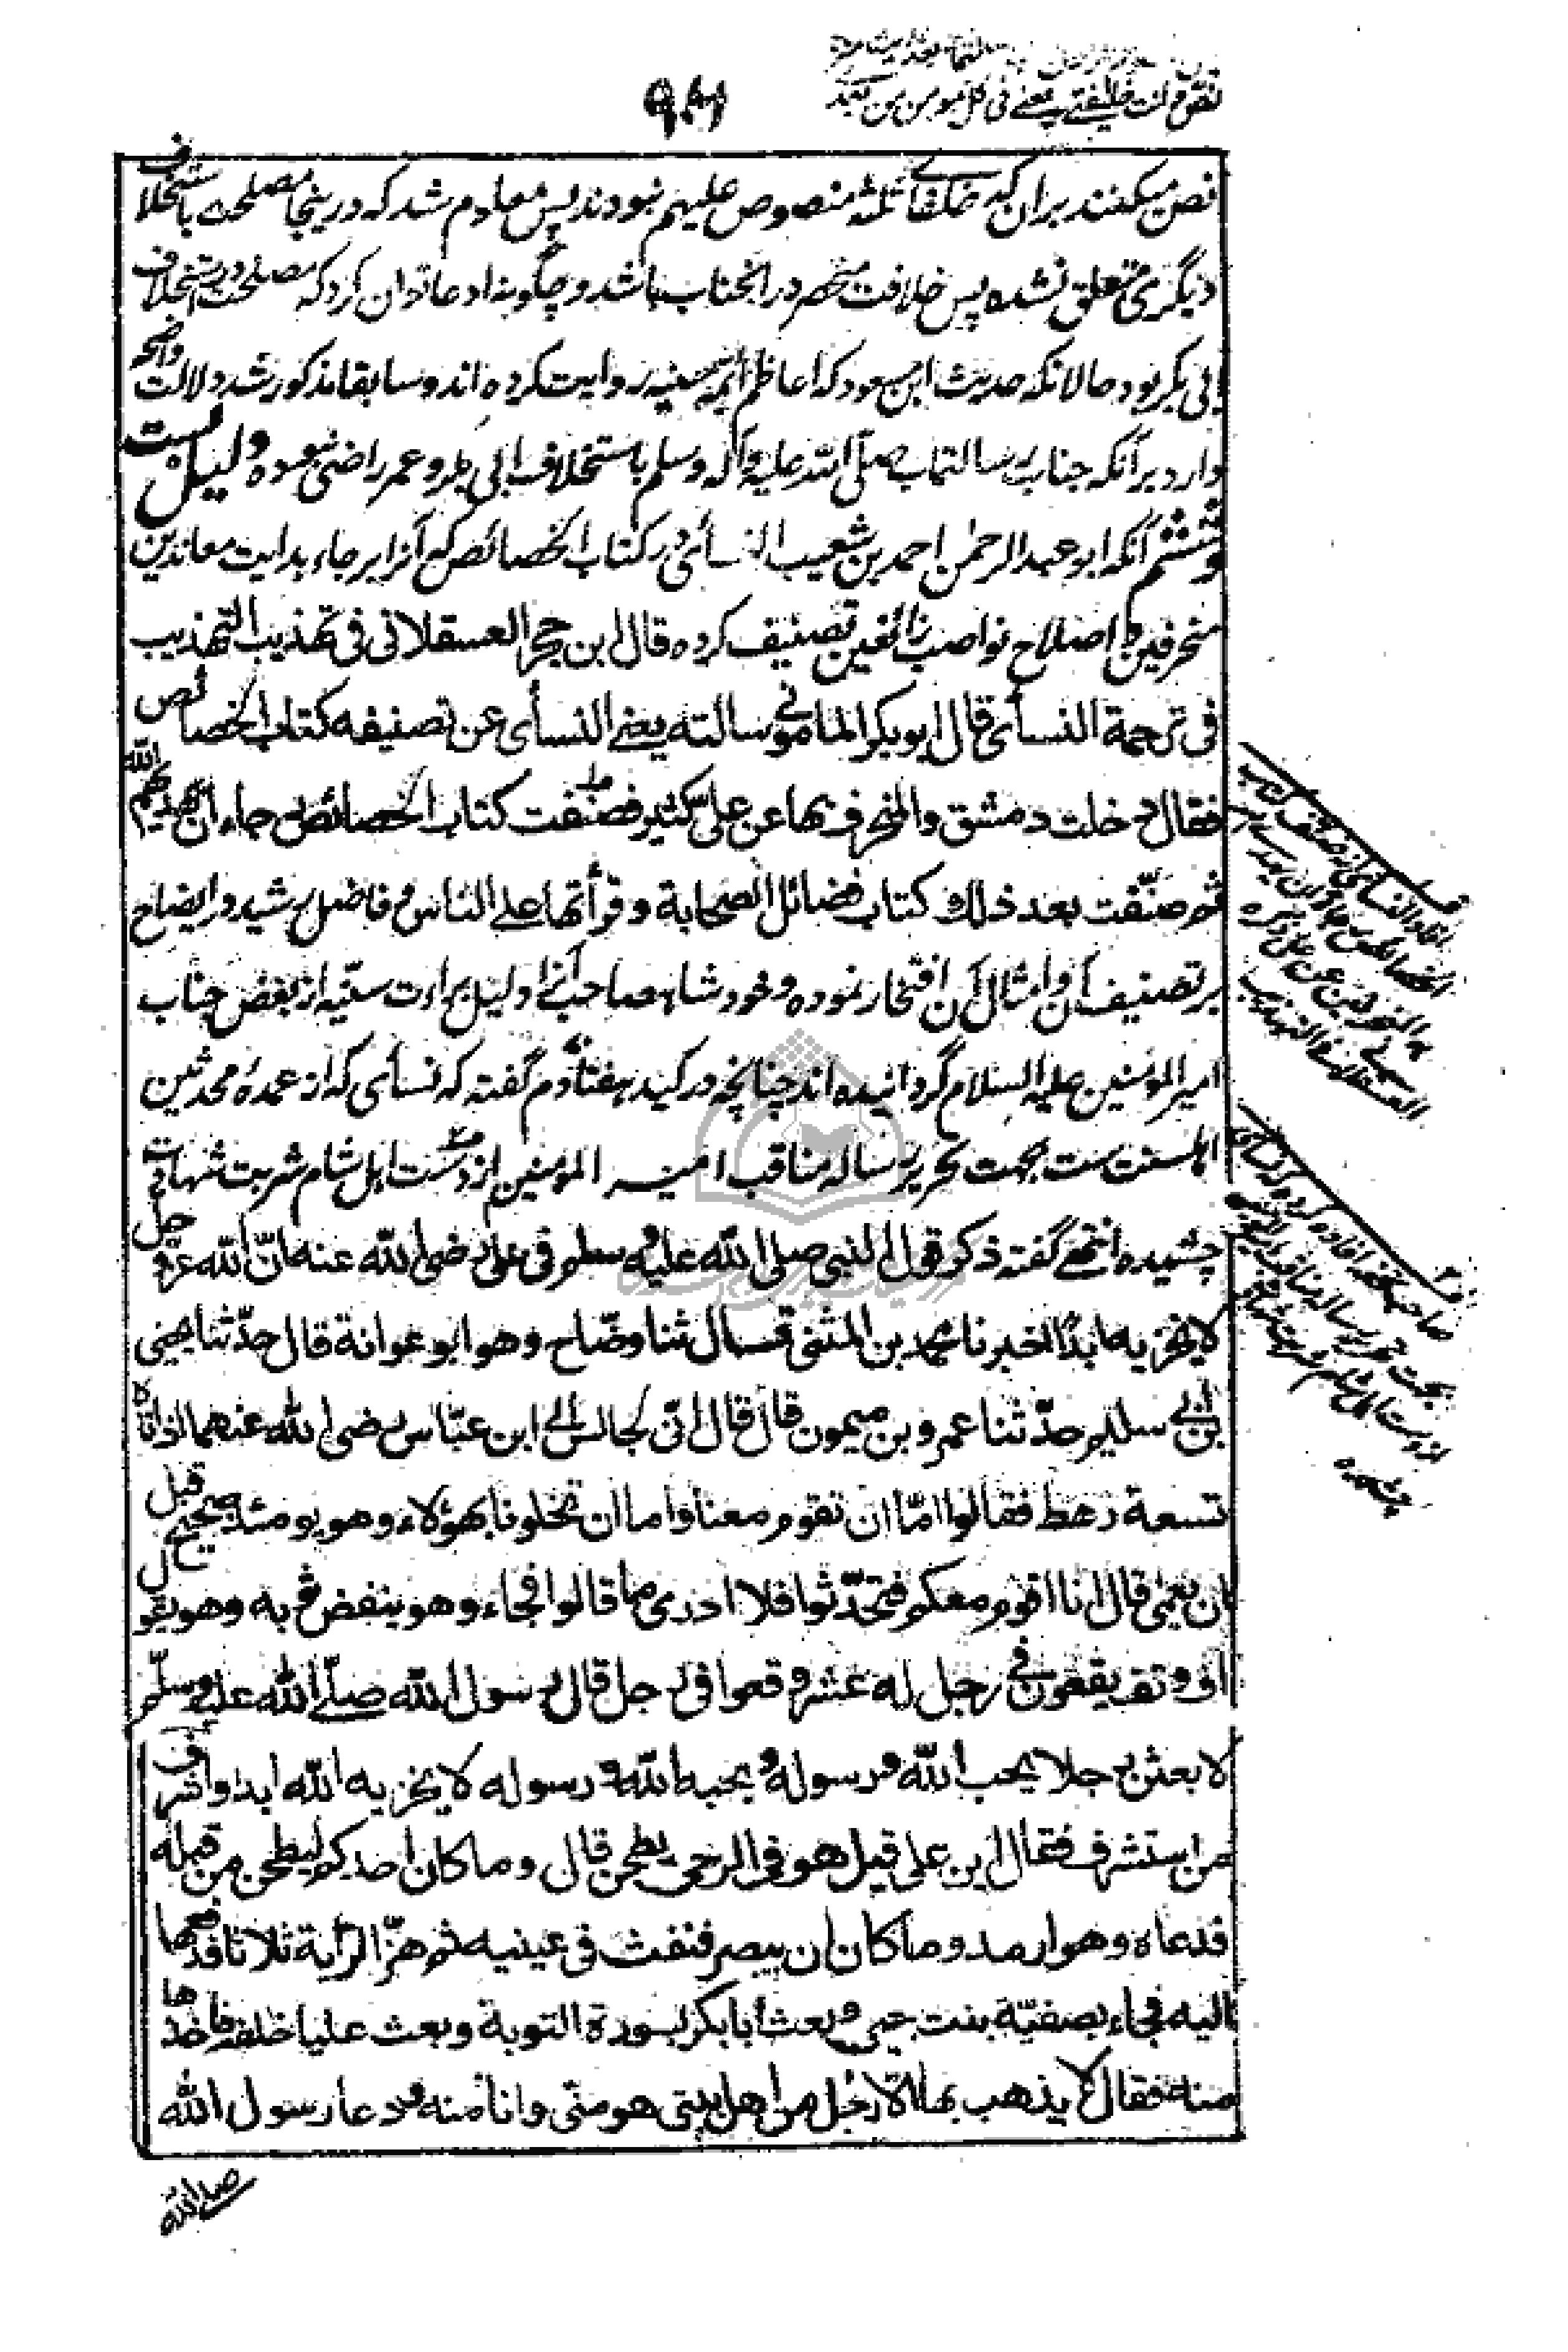 نقض دلالت خلیفتی یعنی فی کل مومن من بعدی
نص میکنند بران که خلفای ثلثه منصوص علیهم نبودند پس معلوم شد که درینجا مصلحت باستخلاف
دیگری متعلق نشده پس خلافت منحصر در انجناب باشد و چگونه ادعا توان کرد که مصلحت در استخلاف
ابی بکر بود حالانکه حدیث ابن مسعود که اعاظم ائمه سنیه روایت کرده اند و سابقا مذکور شد دلالت واضحه
دارد برآنکه جناب رسالتماب صلی الله علیه وآله وسلم باستخلاف ابی بکر و عمر راضی نبوده دلیل بست
و ششم آنکه ابو عبد الرحمن احمد بن شعیب النسأی در کتاب الخصائص که آنرا برجاء هدایت معاندین
منحرفین و اصلاح نواصب زائغین تصنیف کرده قال ابن حجر العسقلانی فی تهذیب التهذیب
فی ترجمة النسأی قال ابو بکر المامونی سالته یعنی النسأی عن تصنیفه کتاب الخصائص
فقال دخلت دمشق والمنحرف بها عن علی کثیر فصنفت کتاب الخصائص رجاء ان یهدیهم الله
ثم صنّفت بعد ذلک کتاب فضائل الصحابة وقرأتها علی الناس و فاضل رشید در ایضاح
بر تصنیف آن و امثال آن افتخار نموده و خود شاهصاحب آنرا دلیل براءت سنّیه از بغض جناب
امیر المؤمنین علیه السلام گردانیده اند چنانچه در کید هفتادم گفته که نسأی که از عمده محدثین
اهلسنت ست بجهت تحریر رساله مناقب امیر المؤمنین از دست اهل شام شربت شهادت
چشیده انتهی گفته ذکر قول النبی صلی الله علیه وسلم فی علی رضی الله عنه انّ الله عزّ و جل
لا یخزیه ابدًا اخبرنا محمد بن المثنی قال ثنا وضّاح وهو ابو عوانة قال حدّثنا یحیی
بن ابی سلیم حدّثنا عمرو بن میمون قال قال انّی لجالس الی ابن عبّاس رضی الله عنهما اذ اتاه
تسعة رهط فقالوا امّا ان تقوم معنا واما ان تخلونا بهؤلاء وهو یومئذ صحیح قبل
ان یعمی قال انا اقوم معکم فتحدّثوا فلا ادری ما قالوا فجاء وهو ینفض ثوبه وهو یقول
اف وتف یقعون فی رجل له عشر وقعوا فی رجل قال رسول الله صلّی الله علیه وسلّم
لابعثن رجلا یحب الله ورسوله ویحبه الله ورسوله لا یخزیه الله ابدا واشرف
من استشرف فقال این علی قیل هو فی الرحی یطحن قال وما کان احدکم لیطحن من قبله
فدعاه وهو ارمد وما کان ان یبصر فنفث فی عینیه ثم هزّ الرّایة ثلاثا فدفعها
الیه فجاء بصفیّة بنت حیی وبعث أبا بکر بسورة التوبة وبعث علیا خلفه فاخذها
منه فقال لا یذهب بها الّا رجُل من اهل بیتی هو منّی وانا منه ودعا رسول الله
صلی الله